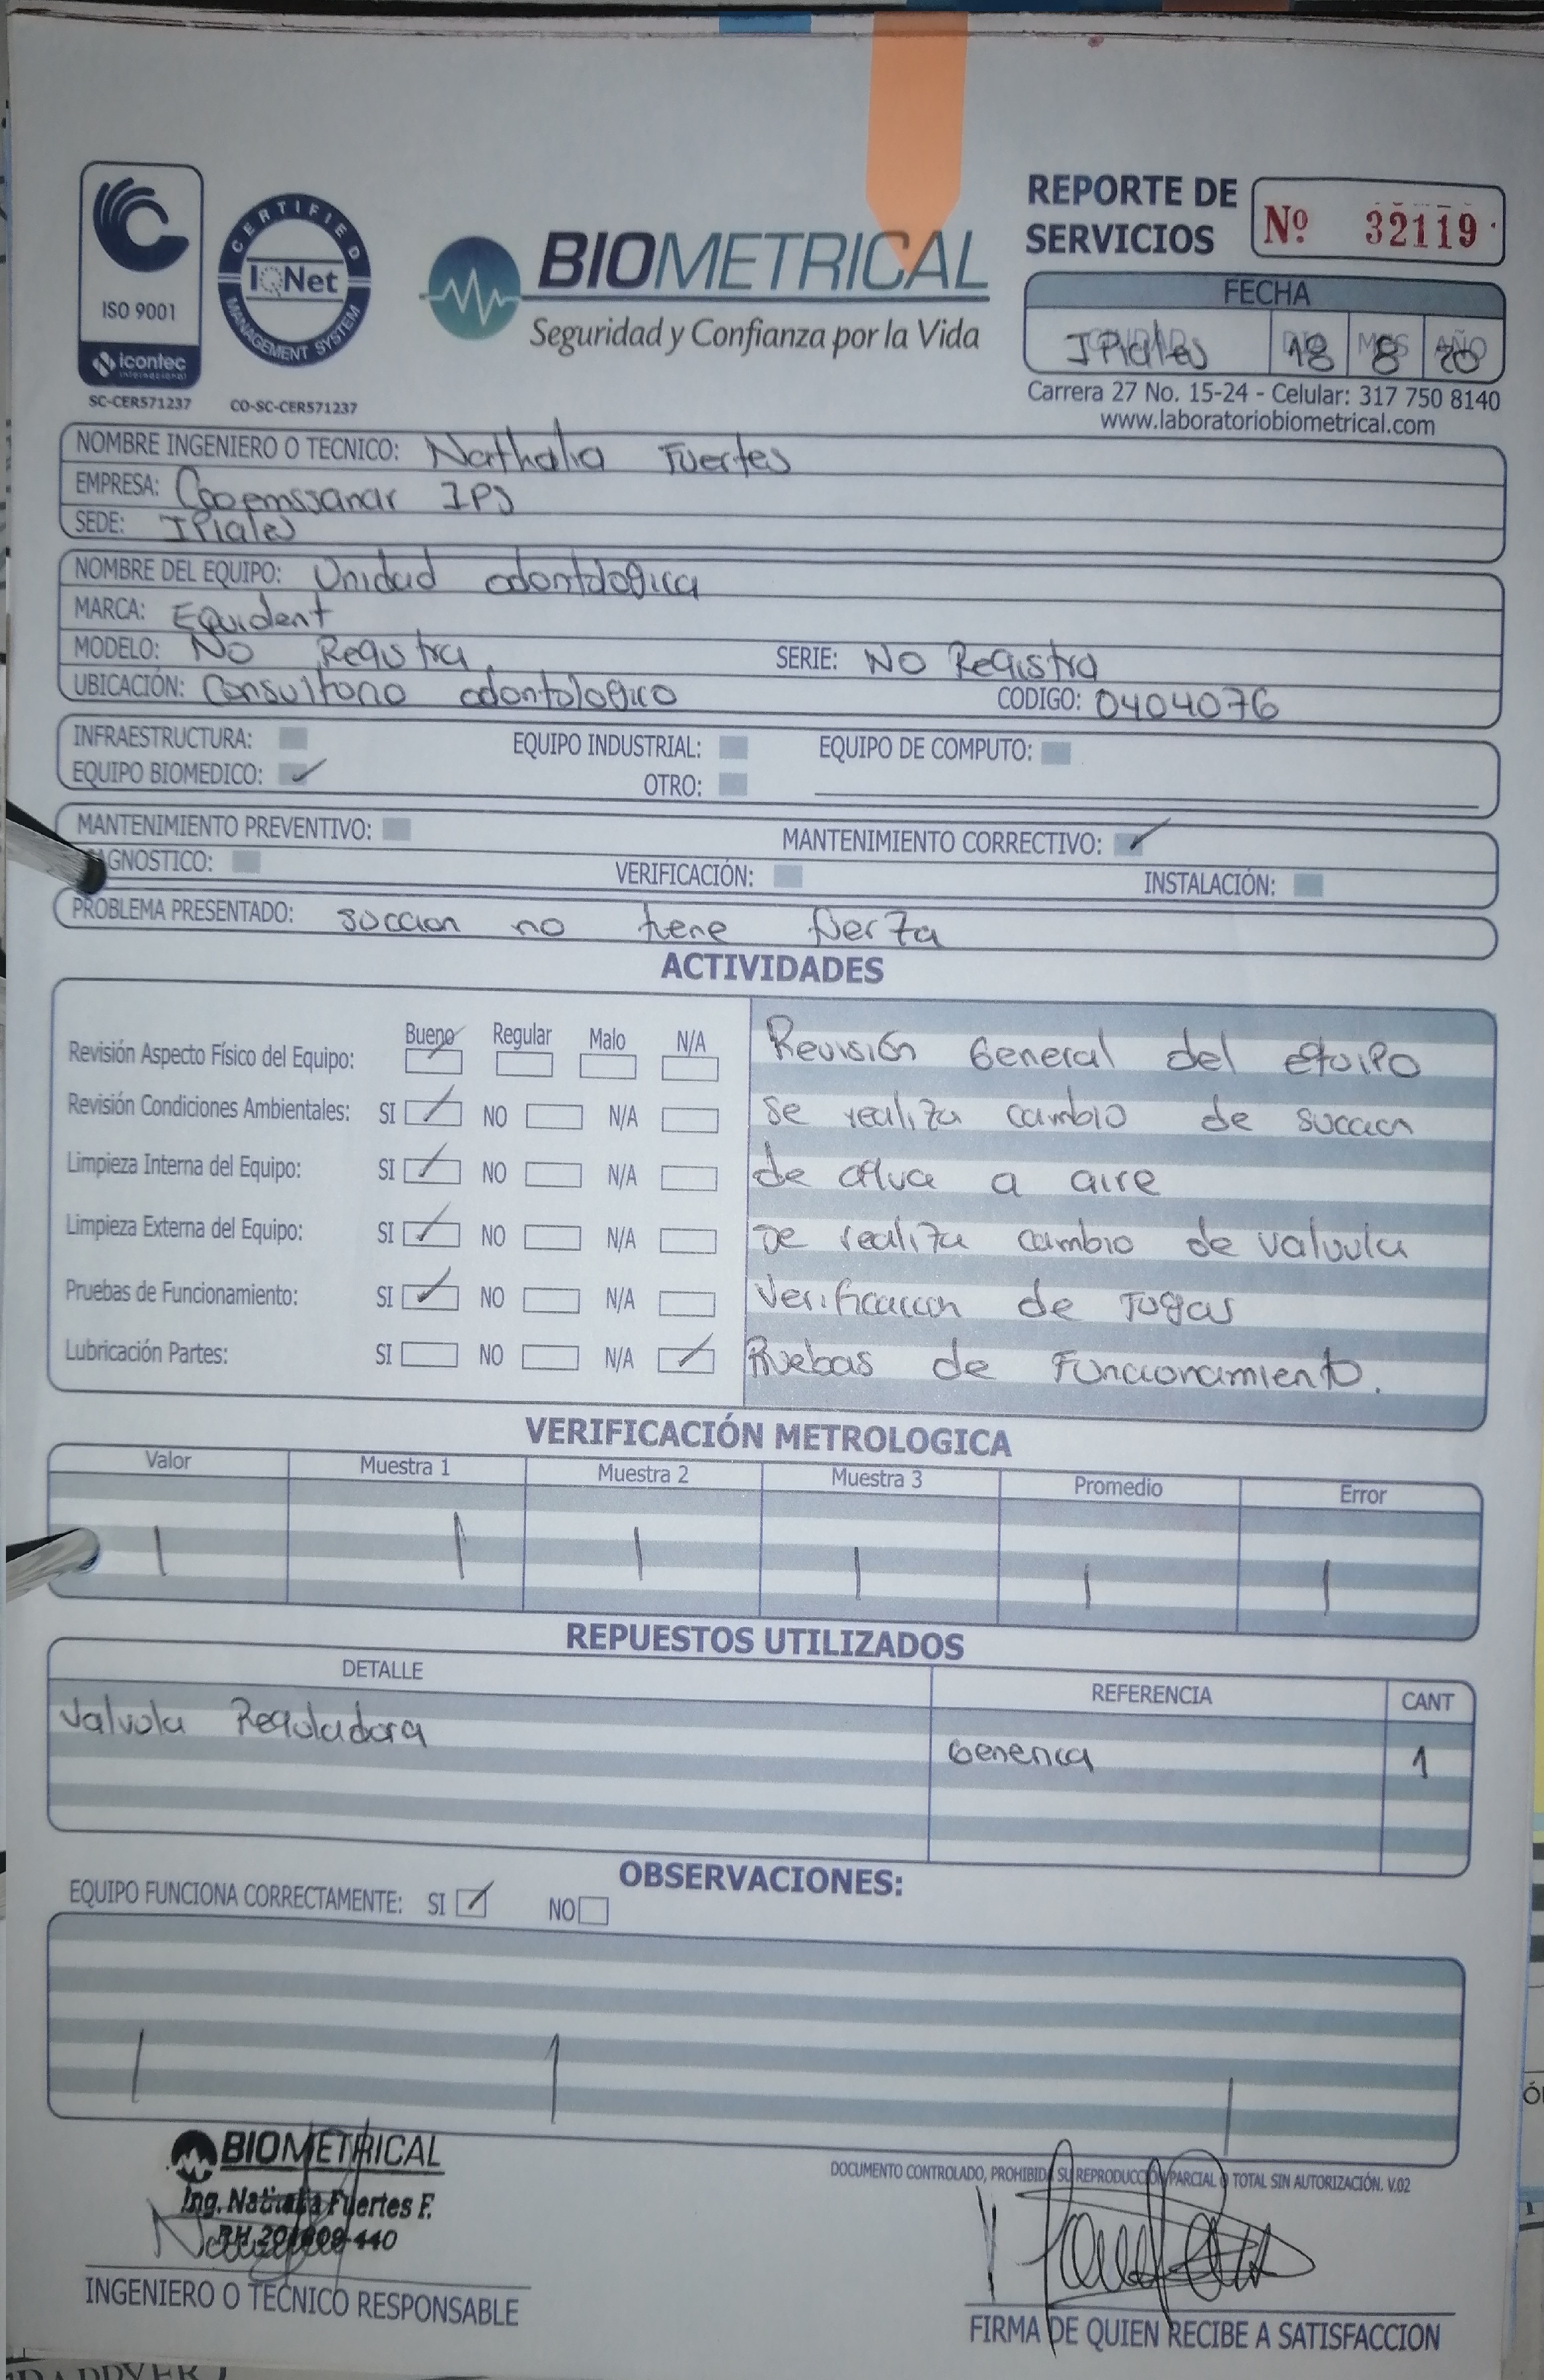 REPORTE DE SERVICIOS Nº 32119
ISO 9001
icontec
internacional
SC-CER571237
CERTIFIED
IQNet
MANAGEMENT SYSTEM
CO-SC-CER571237
BIOMETRICAL
Seguridad y Confianza por la Vida
FECHA
CIUDAD DIA MES AÑO
IPiales 18 8 20
Carrera 27 No. 15-24 - Celular: 317 750 8140
www.laboratoriobiometrical.com
NOMBRE INGENIERO O TECNICO: Nathalia Fuertes
EMPRESA: Cooemssanar IPS
SEDE: IPiales
NOMBRE DEL EQUIPO: Unidad odontologica
MARCA: Equident
MODELO: No Registra SERIE: No Registra
UBICACIÓN: Consultorio odontologico CODIGO: 0404076
INFRAESTRUCTURA: EQUIPO INDUSTRIAL: EQUIPO DE COMPUTO:
EQUIPO BIOMEDICO: ✓ OTRO:
MANTENIMIENTO PREVENTIVO: MANTENIMIENTO CORRECTIVO: ✓
AGNOSTICO: VERIFICACIÓN: INSTALACIÓN:
PROBLEMA PRESENTADO: succion no tiene fuerza
ACTIVIDADES
Bueno Regular Malo N/A
Revisión Aspecto Físico del Equipo:
Revisión Condiciones Ambientales: SI NO N/A
Limpieza Interna del Equipo: SI NO N/A
Limpieza Externa del Equipo: SI NO N/A
Pruebas de Funcionamiento: SI NO N/A
Lubricación Partes: SI NO N/A
Revisión General del equipo
se realiza cambio de succion
de agua a aire
se realiza cambio de valvula
Verificacion de Fugas
Pruebas de Funcionamiento.
VERIFICACIÓN METROLOGICA
Valor Muestra 1 Muestra 2 Muestra 3 Promedio Error
REPUESTOS UTILIZADOS
DETALLE REFERENCIA CANT
Valvula Reguladora Generica 1
OBSERVACIONES:
EQUIPO FUNCIONA CORRECTAMENTE: SI NO
DOCUMENTO CONTROLADO, PROHIBIDA SU REPRODUCCIÓN PARCIAL O TOTAL SIN AUTORIZACIÓN. V.02
BIOMETRICAL
Ing. Nathalia Fuertes F.
INGENIERO O TECNICO RESPONSABLE
FIRMA DE QUIEN RECIBE A SATISFACCION